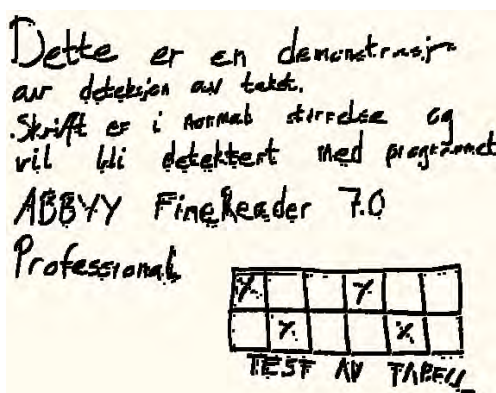 Dette er en demonstrasjon
av deteksjon av tekst.
Skrift er i normal størrelse og
vil bli detektert med programmet
ABBYY FineReader 7.0
Professional
X X
X X
TEST AV TABELL